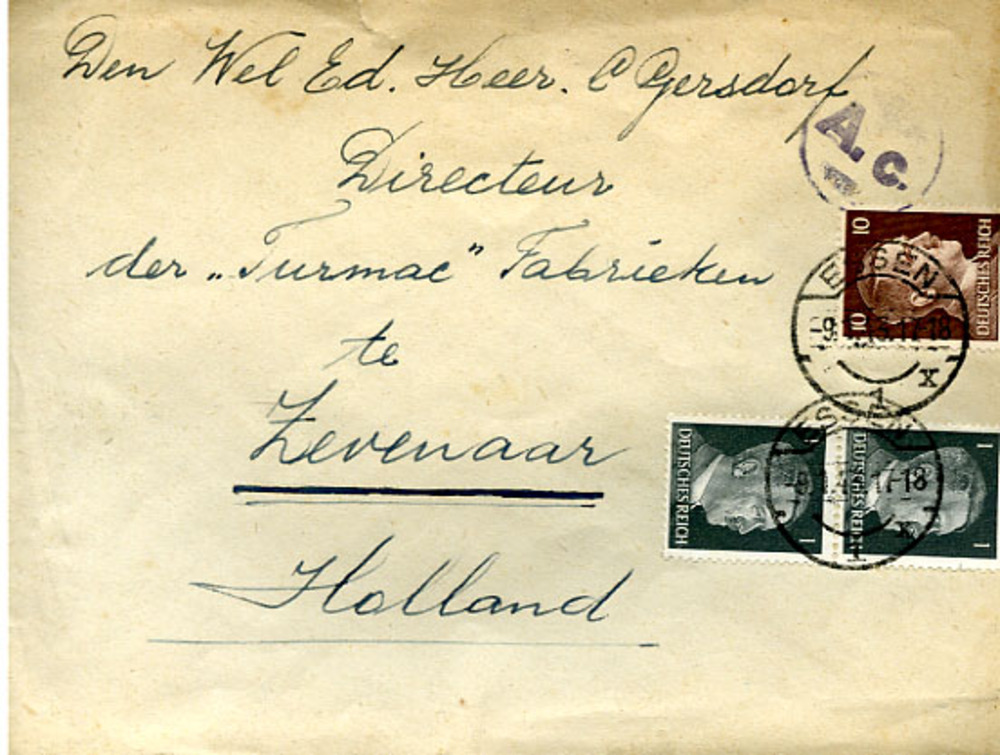 Den Wel Ed. Heer. C Gersdorf
Directeur
der „Turmac” Fabrieken
te
Zevenaar
Holland
A. c.
10
10
DEUTSCHES REICH
ESSEN
17-18
x
1
ESSEN
17-18
x
1
DEUTSCHES REICH
1
DEUTSCHES REICH
1
1